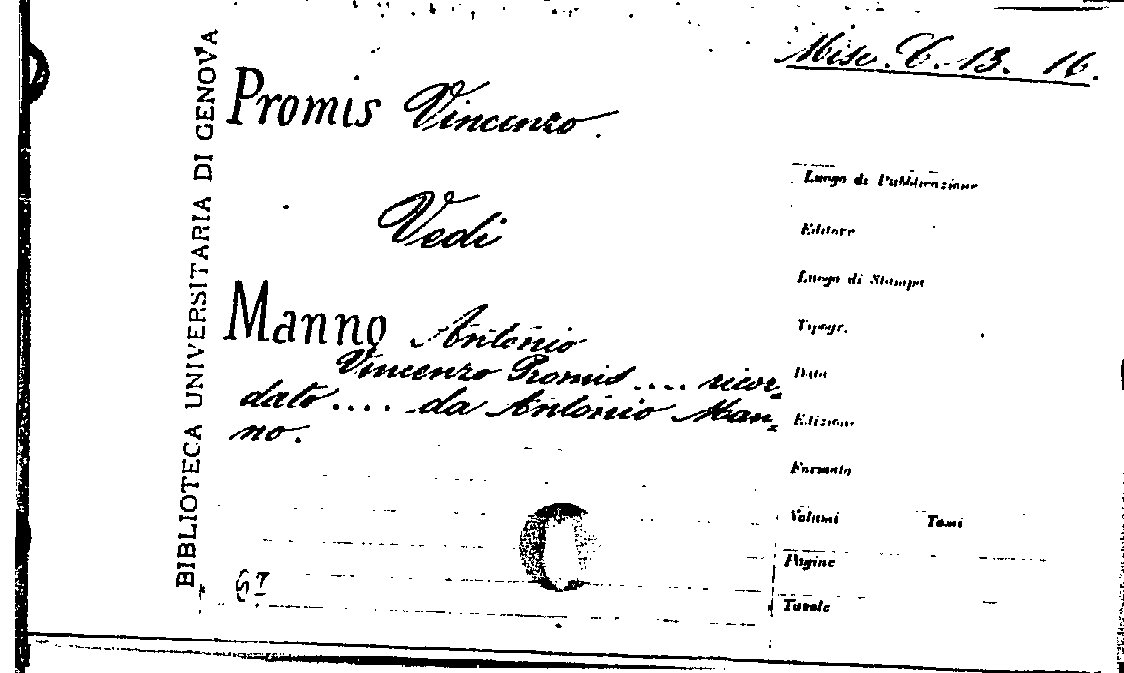 Misc. C. 13. 16.
BIBLIOTECA UNIVERSITARIA DI GENOVA
Promis Vincenzo.
Vedi
Manno Antonio
Vincenzo Promis .... ricor=
dato .... da Antonio Man=
no.
Luogo di Pubblicazione
Editore
Luogo di Stampa
Tipogr.
Data
Edizione
Formato
Volumi Tomi
Pagine
Tavole